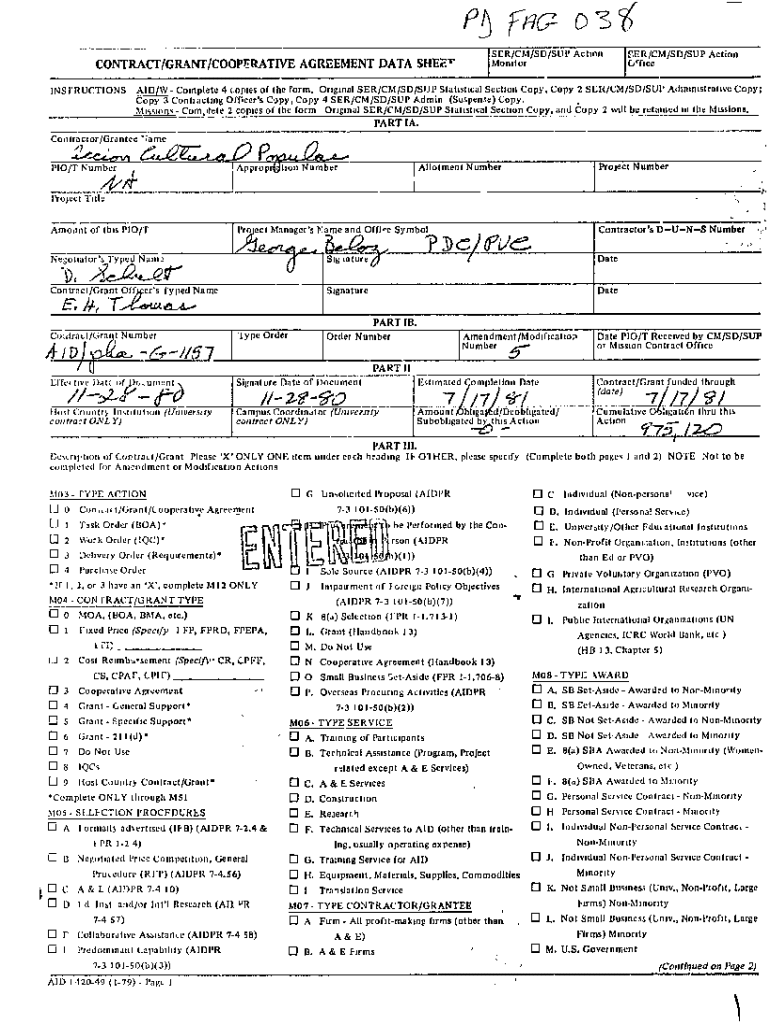 PD FAG 038
CONTRACT/GRANT/COOPERATIVE AGREEMENT DATA SHEET
SER/CM/SD/SUP Action Monitor
SER/CM/SD/SUP Action Office
INSTRUCTIONS AID/W - Complete 4 copies of the form, Original SER/CM/SD/SUP Statistical Section Copy, Copy 2 SER/CM/SD/SUP Administrative Copy;
Copy 3 Contracting Officer's Copy, Copy 4 SER/CM/SD/SUP Admin (Suspense) Copy.
Missions - Complete 2 copies of the form Original SER/CM/SD/SUP Statistical Section Copy, and Copy 2 will be retained in the Missions.
PART IA.
Contractor/Grantee Name
Accion Cultural Popular
PIO/T Number
NA
Appropriation Number
Allotment Number
Project Number
Project Title
Amount of this PIO/T
Project Manager's Name and Office Symbol
George Beloz PDC/PVC
Contractor's D-U-N-S Number
Negotiator's Typed Name
D. Schult
Signature
Date
Contract/Grant Officer's Typed Name
E. H. Thomas
Signature
Date
PART IB.
Contract/Grant Number
AID/pha-G-1157
Type Order
Order Number
Amendment/Modification Number
5
Date PIO/T Received by CM/SD/SUP or Mission Contract Office
PART II
Effective Date of Document
11-28-80
Signature Date of Document
11-28-80
Estimated Completion Date
7/17/81
Contract/Grant funded through (date)
7/17/81
Host Country Institution (University contract ONLY)
Campus Coordinator (University contract ONLY)
Amount Obligated/Deobligated/ Subobligated by this Action
-0-
Cumulative Obligation thru this Action
975,120
PART III.
Description of Contract/Grant Please 'X' ONLY ONE item under each heading IF OTHER, please specify (Complete both pages 1 and 2) NOTE Not to be
completed for Amendment or Modification Actions
M03 - TYPE ACTION
0 Contract/Grant/Cooperative Agreement
1 Task Order (BOA)*
2 Work Order (IQC)*
3 Delivery Order (Requirements)*
4 Purchase Order
*If 1, 2, or 3 have an 'X', complete M12 ONLY
M04 - CONTRACT/GRANT TYPE
0 MOA, (BOA, BMA, etc.)
1 Fixed Price (Specify FFP, FPRD, FPEPA,
FPI)
2 Cost Reimbursement (Specify CR, CPFF,
CS, CPAF, CPIF)
3 Cooperative Agreement
4 Grant - General Support*
5 Grant - Specific Support*
6 Grant - 211(d)*
7 Do Not Use
8 IQCs
9 Host Country Contract/Grant*
*Complete ONLY through M51
M05 - SELECTION PROCEDURES
A Formally advertised (IFB) (AIDPR 7-2.4 &
FPR 1-2 4)
B Negotiated Price Competition, General
Procedure (RFP) (AIDPR 7-4.56)
C A & E (AIDPR 7-4 10)
D Ed. Inst. and/or Int'l Research (AIDPR
7-4 57)
E Collaborative Assistance (AIDPR 7-4 58)
F Predominant Capability (AIDPR
7-3 101-50(b)(3))
AID 1420-49 (1-79) - Page 1
G Unsolicited Proposal (AIDPR
7-3 101-50(b)(6))
be Performed by the Con-
rson (AIDPR
101-50(b)(1))
ENTERED
I Sole Source (AIDPR 7-3 101-50(b)(4))
J Impairment of Foreign Policy Objectives
(AIDPR 7-3 101-50(b)(7))
K 8(a) Selection (FPR 1-1.713-1)
L. Grant (Handbook 13)
M. Do Not Use
N Cooperative Agreement (Handbook 13)
O Small Business Set-Aside (FPR 1-1.706-8)
P. Overseas Procuring Activities (AIDPR
7-3 101-50(b)(2))
M06 - TYPE SERVICE
A. Training of Participants
B. Technical Assistance (Program, Project
related except A & E Services)
C. A & E Services
D. Construction
E. Research
F. Technical Services to AID (other than train-
ing, usually operating expense)
G. Training Service for AID
H. Equipment, Materials, Supplies, Commodities
I Translation Service
M07 - TYPE CONTRACTOR/GRANTEE
A Firm - All profit-making firms (other than
A & E)
B. A & E Firms
C Individual (Non-personal vice)
D. Individual (Personal Service)
E. University/Other Educational Institutions
F. Non-Profit Organization, Institutions (other
than Ed or PVO)
G Private Voluntary Organization (PVO)
H. International Agricultural Research Organi-
zation
I. Public International Organizations (UN
Agencies, ICRC World Bank, etc )
(HB 13, Chapter 5)
M08 - TYPE AWARD
A. SB Set-Aside - Awarded to Non-Minority
B. SB Set-Aside - Awarded to Minority
C. SB Not Set-Aside - Awarded to Non-Minority
D. SB Not Set-Aside - Awarded to Minority
E. 8(a) SBA Awarded to Non-Minority (Women-
Owned, Veterans, etc )
F. 8(a) SBA Awarded to Minority
G. Personal Service Contract - Non-Minority
H Personal Service Contract - Minority
I. Individual Non-Personal Service Contract -
Non-Minority
J. Individual Non-Personal Service Contract -
Minority
K. Not Small Business (Univ., Non-Profit, Large
Firms) Non-Minority
L. Not Small Business (Univ., Non-Profit, Large
Firms) Minority
M. U.S. Government
(Continued on Page 2)
1